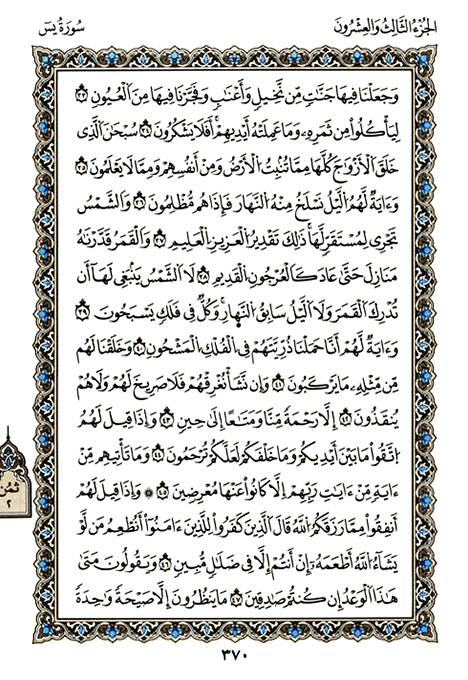 الجُزْءُ الثَّالِثُ وَالعِشْرُونَ
سُورَةُ يسٓ
وَجَعَلْنَا فِيهَا جَنَّٰتٍ مِّن نَّخِيلٍ وَأَعْنَٰبٍ وَفَجَّرْنَا فِيهَا مِنَ الْعُيُونِ ٣٣
لِيَأْكُلُواْ مِن ثَمَرِهِۦ وَمَا عَمِلَتْهُ أَيْدِيهِمْ أَفَلَا يَشْكُرُونَ ٣٤ سُبْحَٰنَ الَّذِى
خَلَقَ الْأَزْوَٰجَ كُلَّهَا مِمَّا تُنۢبِتُ الْأَرْضُ وَمِنْ أَنفُسِهِمْ وَمِمَّا لَا يَعْلَمُونَ ٣٥
وَءَايَةٌ لَّهُمُ الَّيْلُ نَسْلَخُ مِنْهُ النَّهَارَ فَإِذَا هُم مُّظْلِمُونَ ٣٦ وَالشَّمْسُ
تَجْرِى لِمُسْتَقَرٍّ لَّهَا ذَٰلِكَ تَقْدِيرُ الْعَزِيزِ الْعَلِيمِ ٣٧ وَالْقَمَرُ قَدَّرْنَٰهُ
مَنَازِلَ حَتَّىٰ عَادَ كَالْعُرْجُونِ الْقَدِيمِ ٣٨ لَا الشَّمْسُ يَنۢبَغِى لَهَا أَن
تُدْرِكَ الْقَمَرَ وَلَا الَّيْلُ سَابِقُ النَّهَارِ وَكُلٌّ فِى فَلَكٍ يَسْبَحُونَ ٣٩
وَءَايَةٌ لَّهُمْ أَنَّا حَمَلْنَا ذُرِّيَّتَهُمْ فِى الْفُلْكِ الْمَشْحُونِ ٤٠ وَخَلَقْنَا لَهُم
مِّن مِّثْلِهِۦ مَا يَرْكَبُونَ ٤١ وَإِن نَّشَأْ نُغْرِقْهُمْ فَلَا صَرِيخَ لَهُمْ وَلَا هُمْ
يُنقَذُونَ ٤٢ إِلَّا رَحْمَةً مِّنَّا وَمَتَٰعًا إِلَىٰ حِينٍ ٤٣ وَإِذَا قِيلَ لَهُمُ
اتَّقُواْ مَا بَيْنَ أَيْدِيكُمْ وَمَا خَلْفَكُمْ لَعَلَّكُمْ تُرْحَمُونَ ٤٤ وَمَا تَأْتِيهِم مِّنْ
ءَايَةٍ مِّنْ ءَايَٰتِ رَبِّهِمْ إِلَّا كَانُواْ عَنْهَا مُعْرِضِينَ ٤٥ وَإِذَا قِيلَ لَهُمْ
أَنفِقُواْ مِمَّا رَزَقَكُمُ اللَّهُ قَالَ الَّذِينَ كَفَرُواْ لِلَّذِينَ ءَامَنُواْ أَنُطْعِمُ مَن لَّوْ
يَشَآءُ اللَّهُ أَطْعَمَهُۥ إِنْ أَنتُمْ إِلَّا فِى ضَلَٰلٍ مُّبِينٍ ٤٦ وَيَقُولُونَ مَتَىٰ
هَٰذَا الْوَعْدُ إِن كُنتُمْ صَٰدِقِينَ ٤٧ مَا يَنظُرُونَ إِلَّا صَيْحَةً وَٰحِدَةً
ثُمُن
٢
٣٧٠